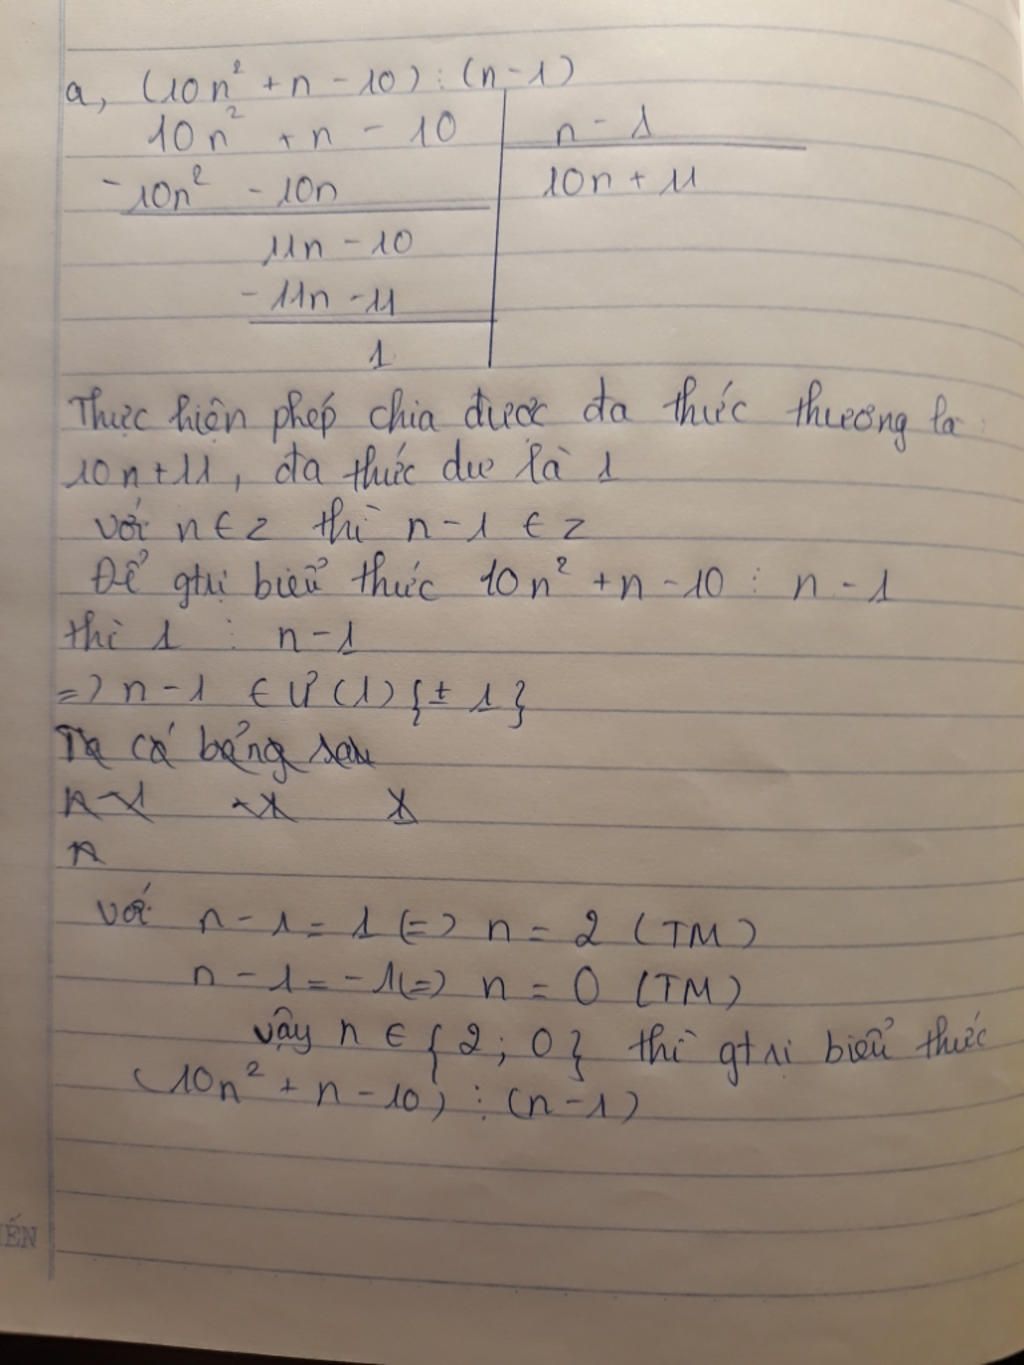 a, (10n² + n - 10) : (n - 1)
10n² + n - 10 n - 1
- 10n² - 10n 10n + 11
11n - 10
- 11n - 11
1
Thực hiện phép chia được đa thức thương là :
10n + 11, đa thức dư là 1
với n ∈ Z thì n - 1 ∈ Z
Để gtrị biểu thức 10n² + n - 10 ⋮ n - 1
thì 1 ⋮ n - 1
=> n - 1 ∈ Ư (1) {± 1}
Ta có bảng sau
n - 1 -1 1
n
với n - 1 = 1 (=) n = 2 (TM)
n - 1 = - 1 (=) n = 0 (TM)
vậy n ∈ {2 ; 0} thì gtrị biểu thức
(10n² + n - 10) ⋮ (n - 1)
ẾN